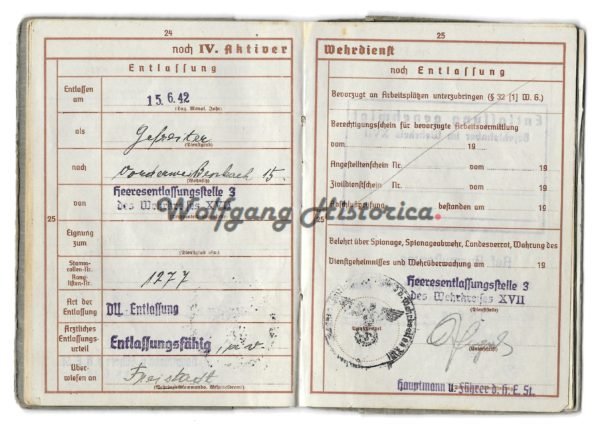 24
noch IV. Aktiver
Entlassung
Entlassen
am
15.6.42
(Tag, Monat, Jahr)
als
Gefreiter
(Dienstgrad)
nach
Vorderweißenbach 15.
(Wohnort)
von
Heeresentlassungsstelle 3
des Wehrkreises XVII
Wolfgang Historica.
Eignung
zum
(Dienstgrad usw.)
Stamm-
rollen-Nr.
Rang-
listen-Nr.
1277
Art der
Entlassung
DU.-Entlassung
Ärztliches
Entlassungs-
urteil
Entlassungsfähig,
Über-
wiesen an
Freistadt
25
25
Wehrdienst
noch Entlassung
Bevorzugt an Arbeitsplätzen unterzubringen (§ 32 [1] W. G.)
Berechtigungsschein für bevorzugte Arbeitsvermittlung
vom 19
Angestelltenschein Nr. vom 19
Zivildienstschein Nr. vom 19
Abschlußprüfung bestanden am 19
Belehrt über Spionage, Spionageabwehr, Landesverrat, Wahrung des
Dienstgeheimnisses und Wehrüberwachung am 19
Heeresentlassungsstelle 3
des Wehrkreises XVII
(Dienststelle)
(Dienstsiegel)
(Unterschrift)
Hauptmann u. Führer d. H. E. St.
25